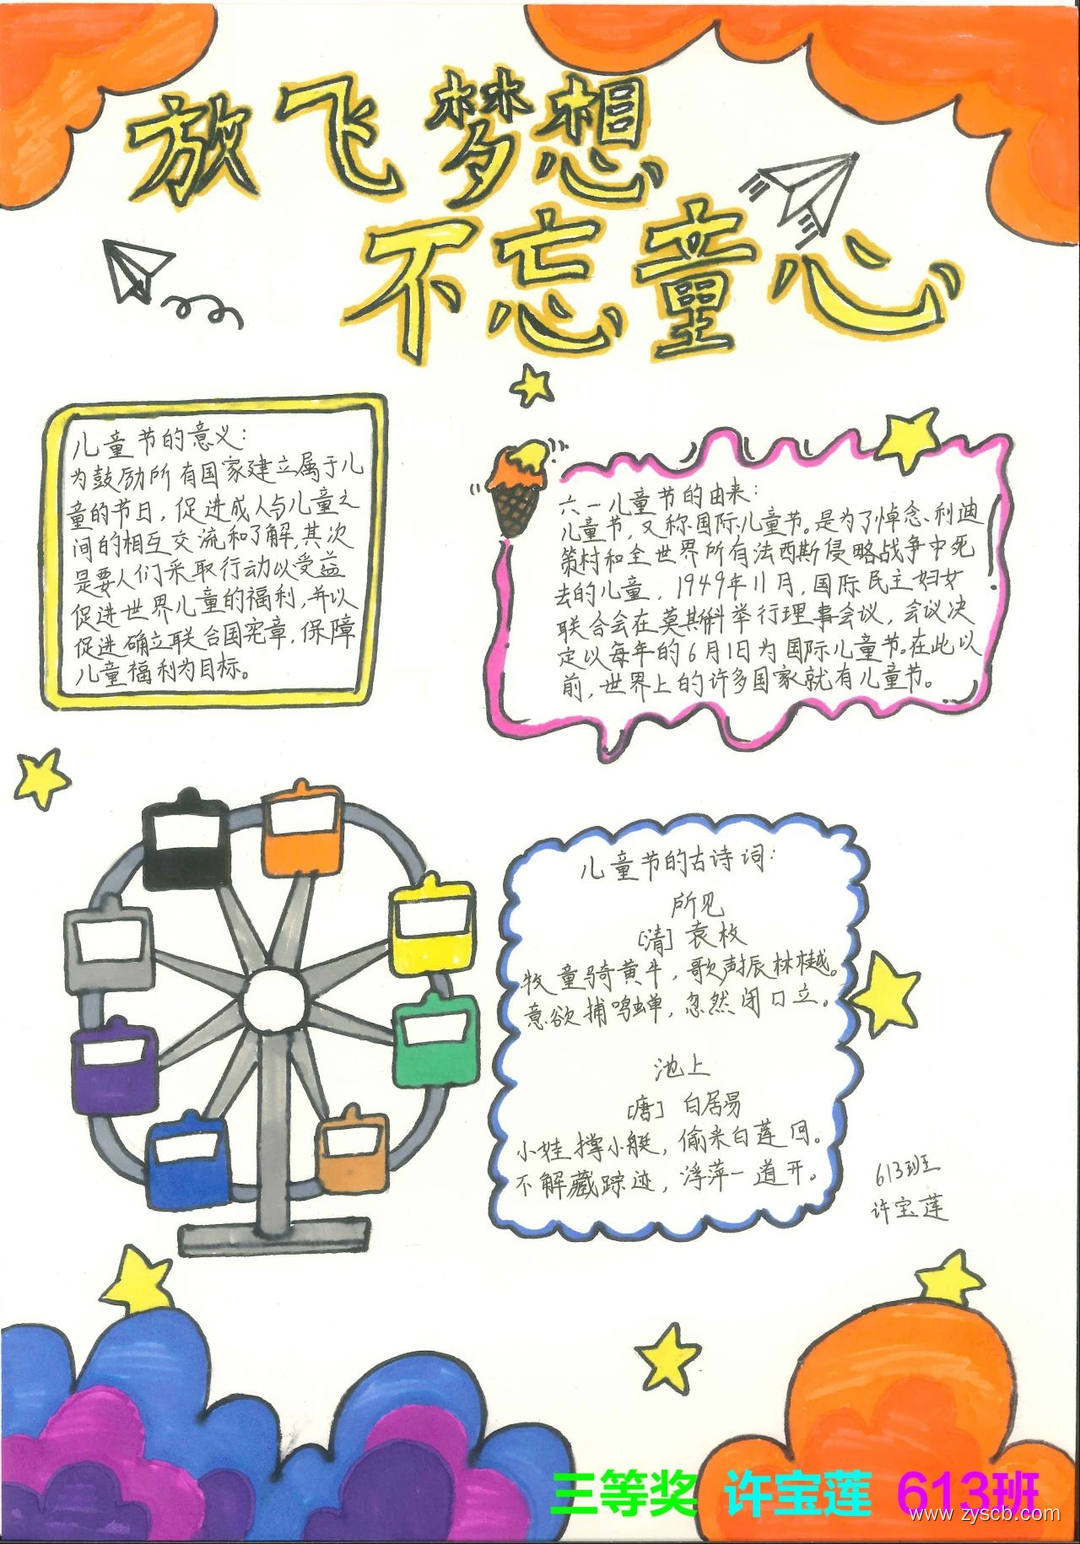 放飞梦想
不忘童心
儿童节的意义:
为鼓励所有国家建立属于儿
童的节日，促进成人与儿童之
间的相互交流和了解,其次
是要人们采取行动以受益
促进世界儿童的福利,并以
促进确立联合国宪章,保障
儿童福利为目标。
六一儿童节的由来:
儿童节,又称国际儿童节。是为了悼念利迪
策村和全世界所有法西斯侵略战争中死
去的儿童，1949年11月,国际民主妇女
联合会在莫斯科举行理事会议，会议决
定以每年的6月1日为国际儿童节。在此以
前,世界上的许多国家就有儿童节。
儿童节的古诗词:
所见
[清] 袁枚
牧童骑黄牛，歌声振林樾。
意欲捕鸣蝉，忽然闭口立。
池上
[唐] 白居易
小娃撑小艇，偷来白莲回。
不解藏踪迹，浮萍一道开。
613班
许宝莲
三等奖 许宝莲 613班
www.zyscb.com